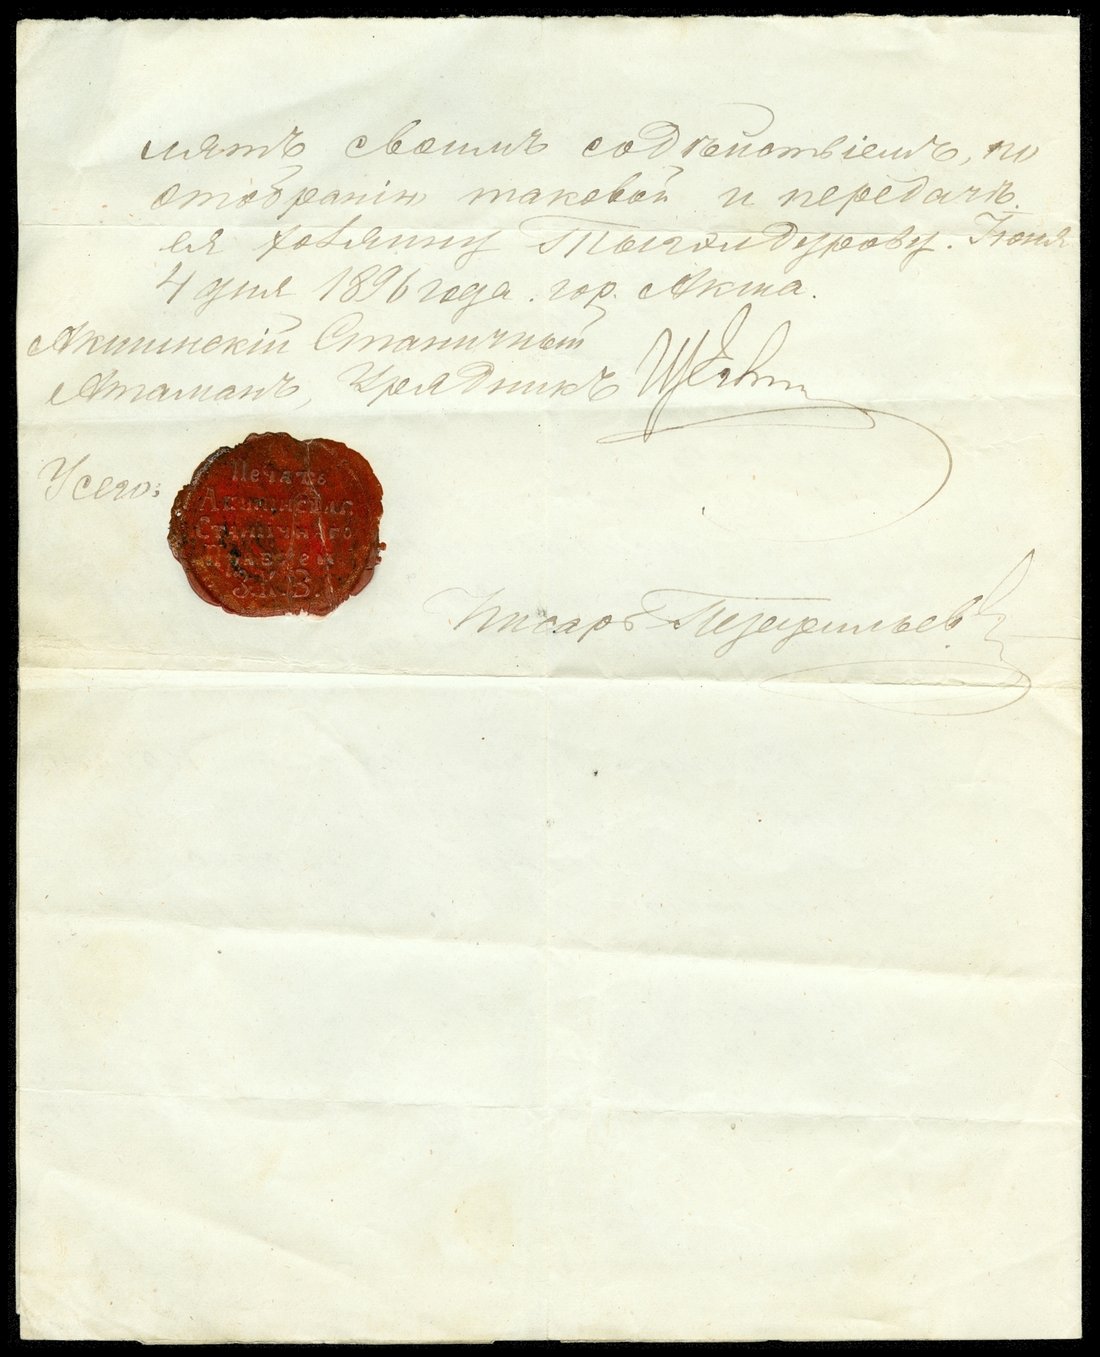 лять своимъ содѣйствіемъ, по
отобранію таковой и передачѣ
ея хозяину Тыгылдурову. Іюня
4 дня 1896 года. гор. Акша.
Акшинскій Станичный
Атаманъ, Урядникъ
Печать
Акшинскаго
Станичнаго
Правленія
З.К.В.
Писарь